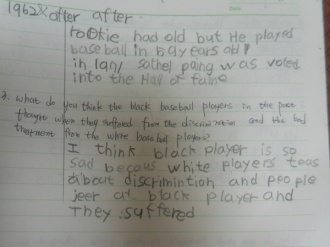 1962 after after
rookie had old but He played
baseball in B4years old
in 1971 sathel paing was voted
into the Hall of fame
2. what do you think the black baseball players in the past
thought when they suffered from the discrimination and the bad
treatment from the white baseball players?
I think black player is so
sad becaus white players teas
about discrimintion and people
jeer at black player and
They suffered